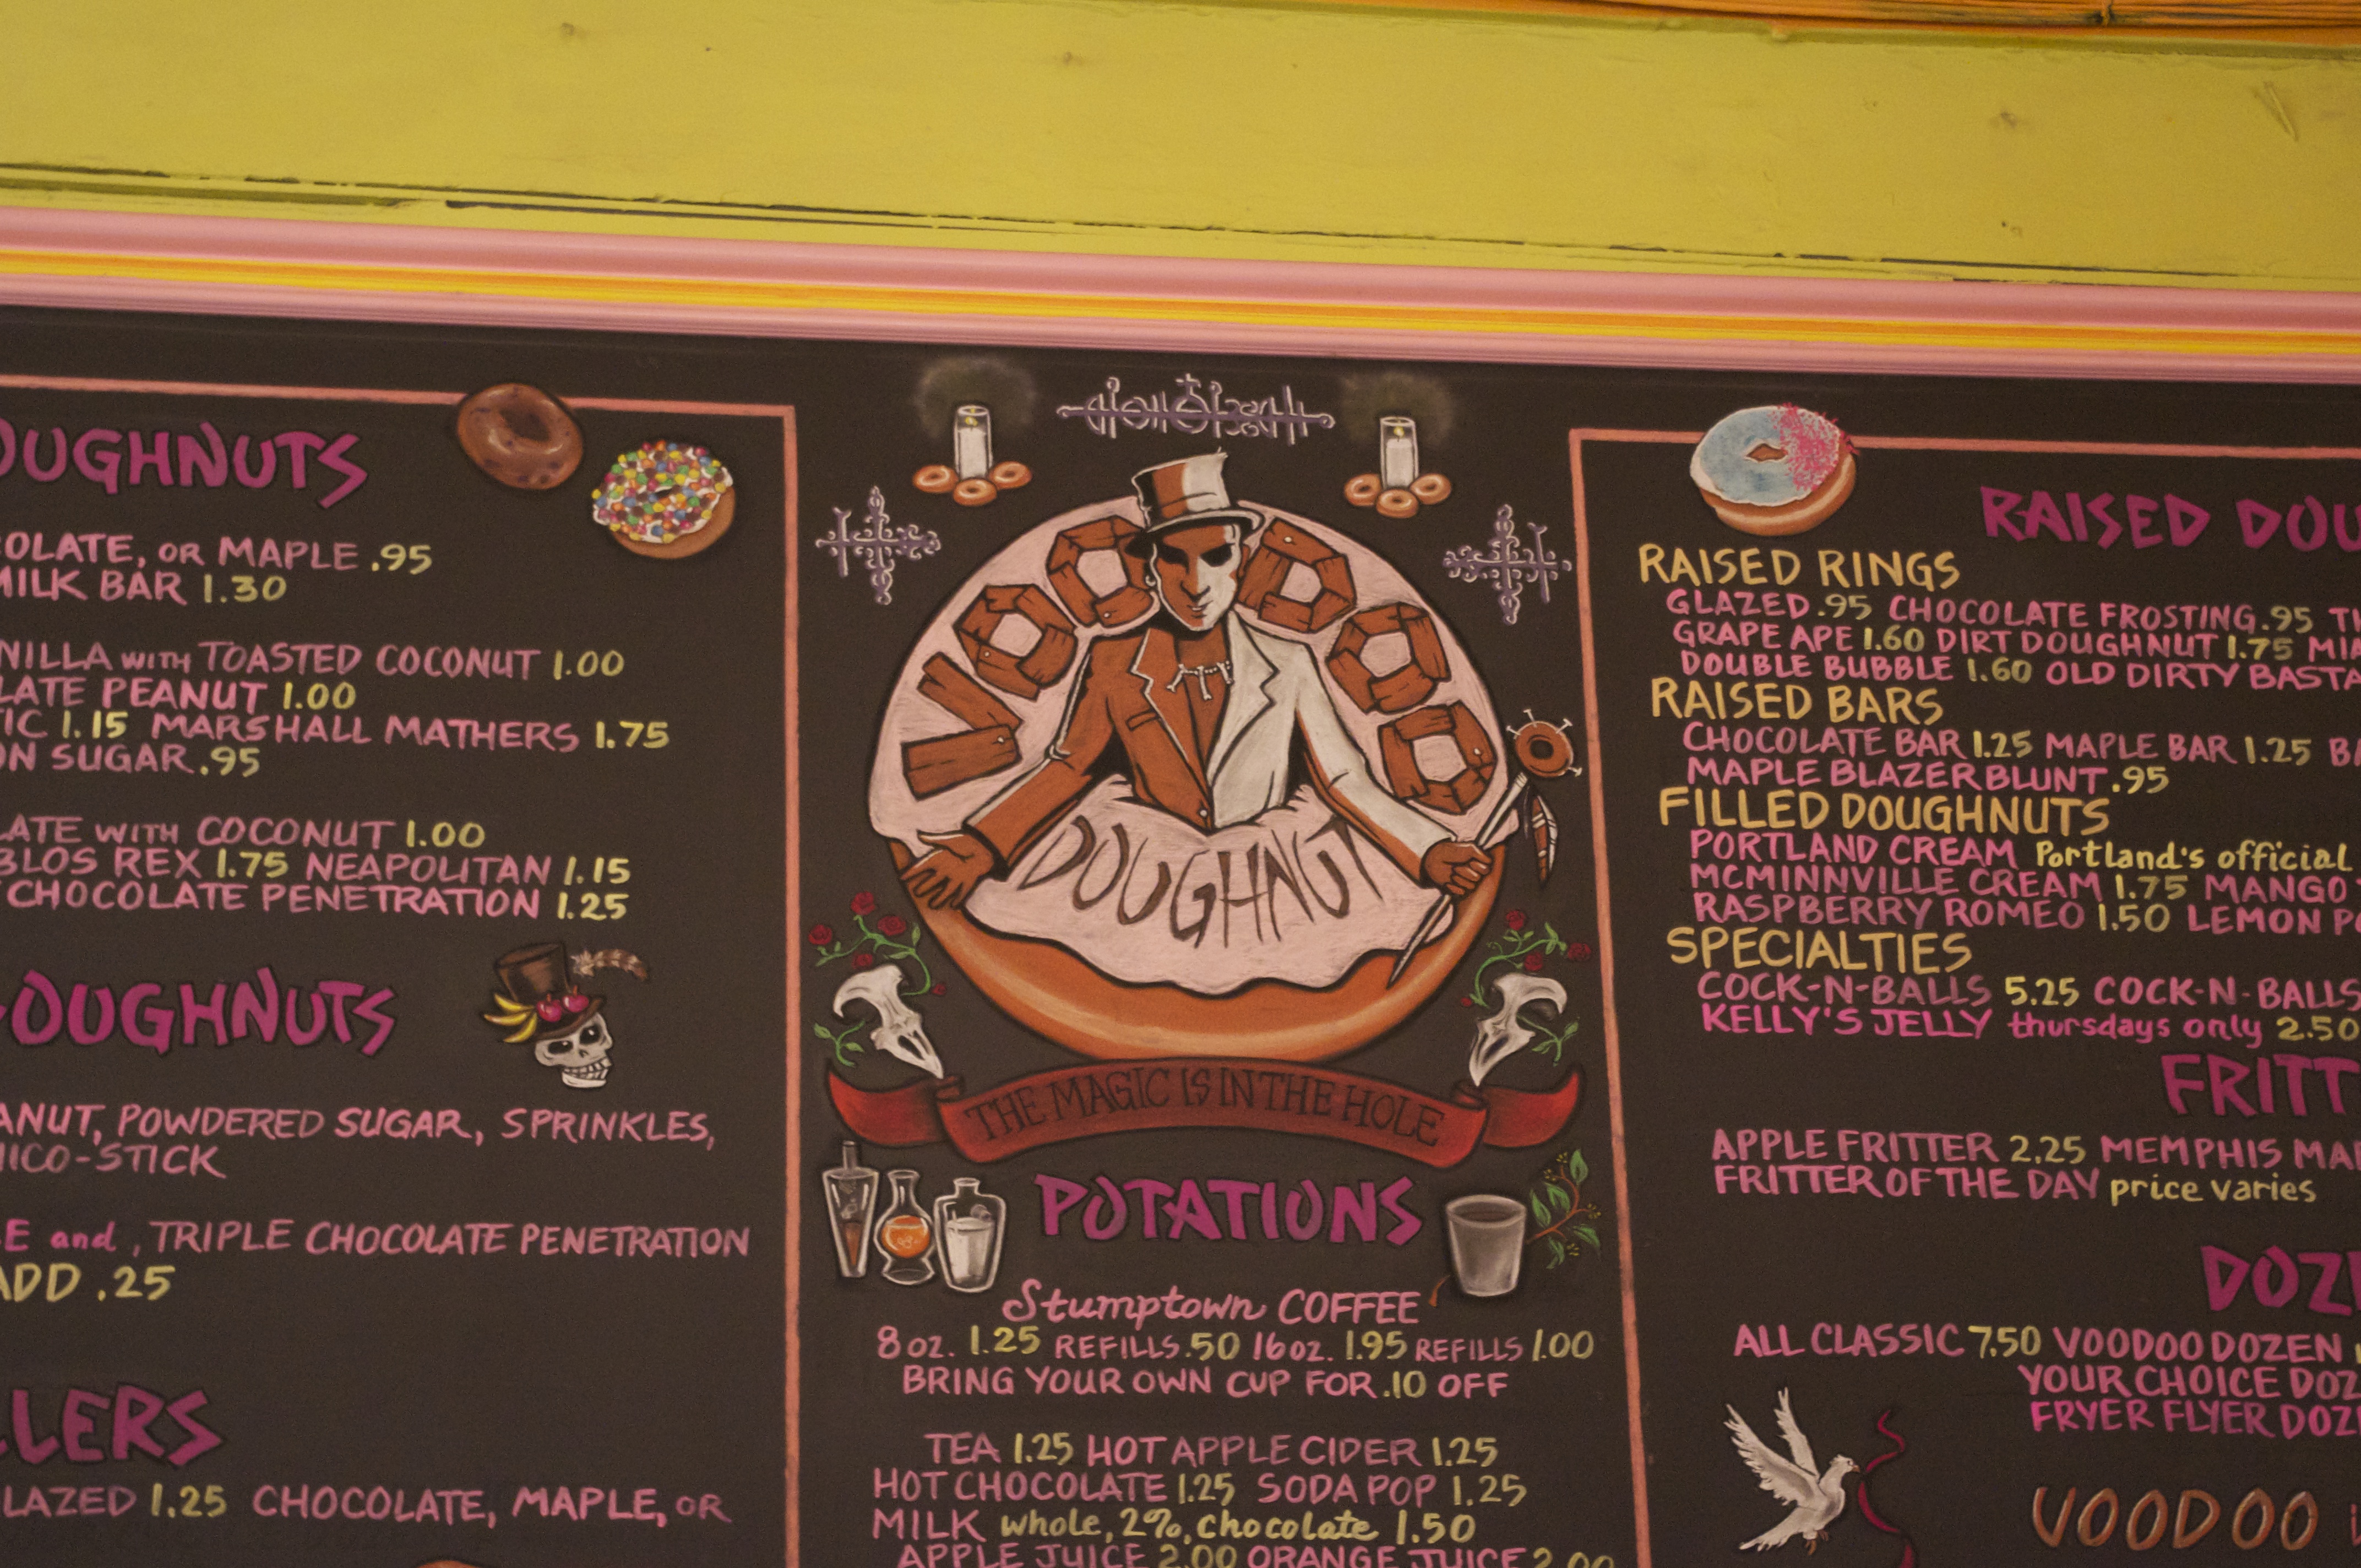 OUGHNUTS
OLATE, OR MAPLE .95
MILK BAR 1.30
NILLA WITH TOASTED COCONUT 1.00
LATE PEANUT 1.00
TIC 1.15 MARSHALL MATHERS 1.75
ON SUGAR .95
LATE WITH COCONUT 1.00
BLOS REX 1.75 NEAPOLITAN 1.15
CHOCOLATE PENETRATION 1.25
DOUGHNUTS
ANUT, POWDERED SUGAR, SPRINKLES,
HICO-STICK
E and, TRIPLE CHOCOLATE PENETRATION
ADD .25
LLERS
LAZED 1.25 CHOCOLATE, MAPLE, OR
VOODOO
DOUGHNUT
THE MAGIC IS IN THE HOLE
POTATIONS
Stumptown COFFEE
8 OZ. 1.25 REFILLS .50 16 OZ. 1.95 REFILLS 1.00
BRING YOUR OWN CUP FOR .10 OFF
TEA 1.25 HOT APPLE CIDER 1.25
HOT CHOCOLATE 1.25 SODA POP 1.25
MILK whole, 2%, chocolate 1.50
APPLE JUICE 2.00 ORANGE JUICE 2.00
RAISED DOU
RAISED RINGS
GLAZED .95 CHOCOLATE FROSTING .95 TH
GRAPE APE 1.60 DIRT DOUGHNUT 1.75 MIA
DOUBLE BUBBLE 1.60 OLD DIRTY BASTA
RAISED BARS
CHOCOLATE BAR 1.25 MAPLE BAR 1.25 BA
MAPLE BLAZER BLUNT .95
FILLED DOUGHNUTS
PORTLAND CREAM Portland's official
MCMINNVILLE CREAM 1.75 MANGO
RASPBERRY ROMEO 1.50 LEMON PO
SPECIALTIES
COCK-N-BALLS 5.25 COCK-N-BALLS
KELLY'S JELLY thursdays only 2.50
FRITT
APPLE FRITTER 2.25 MEMPHIS MA
FRITTER OF THE DAY price varies
DOZE
ALL CLASSIC 7.50 VOODOO DOZEN
YOUR CHOICE DOZ
FRYER FLYER DOZ
VOODOO